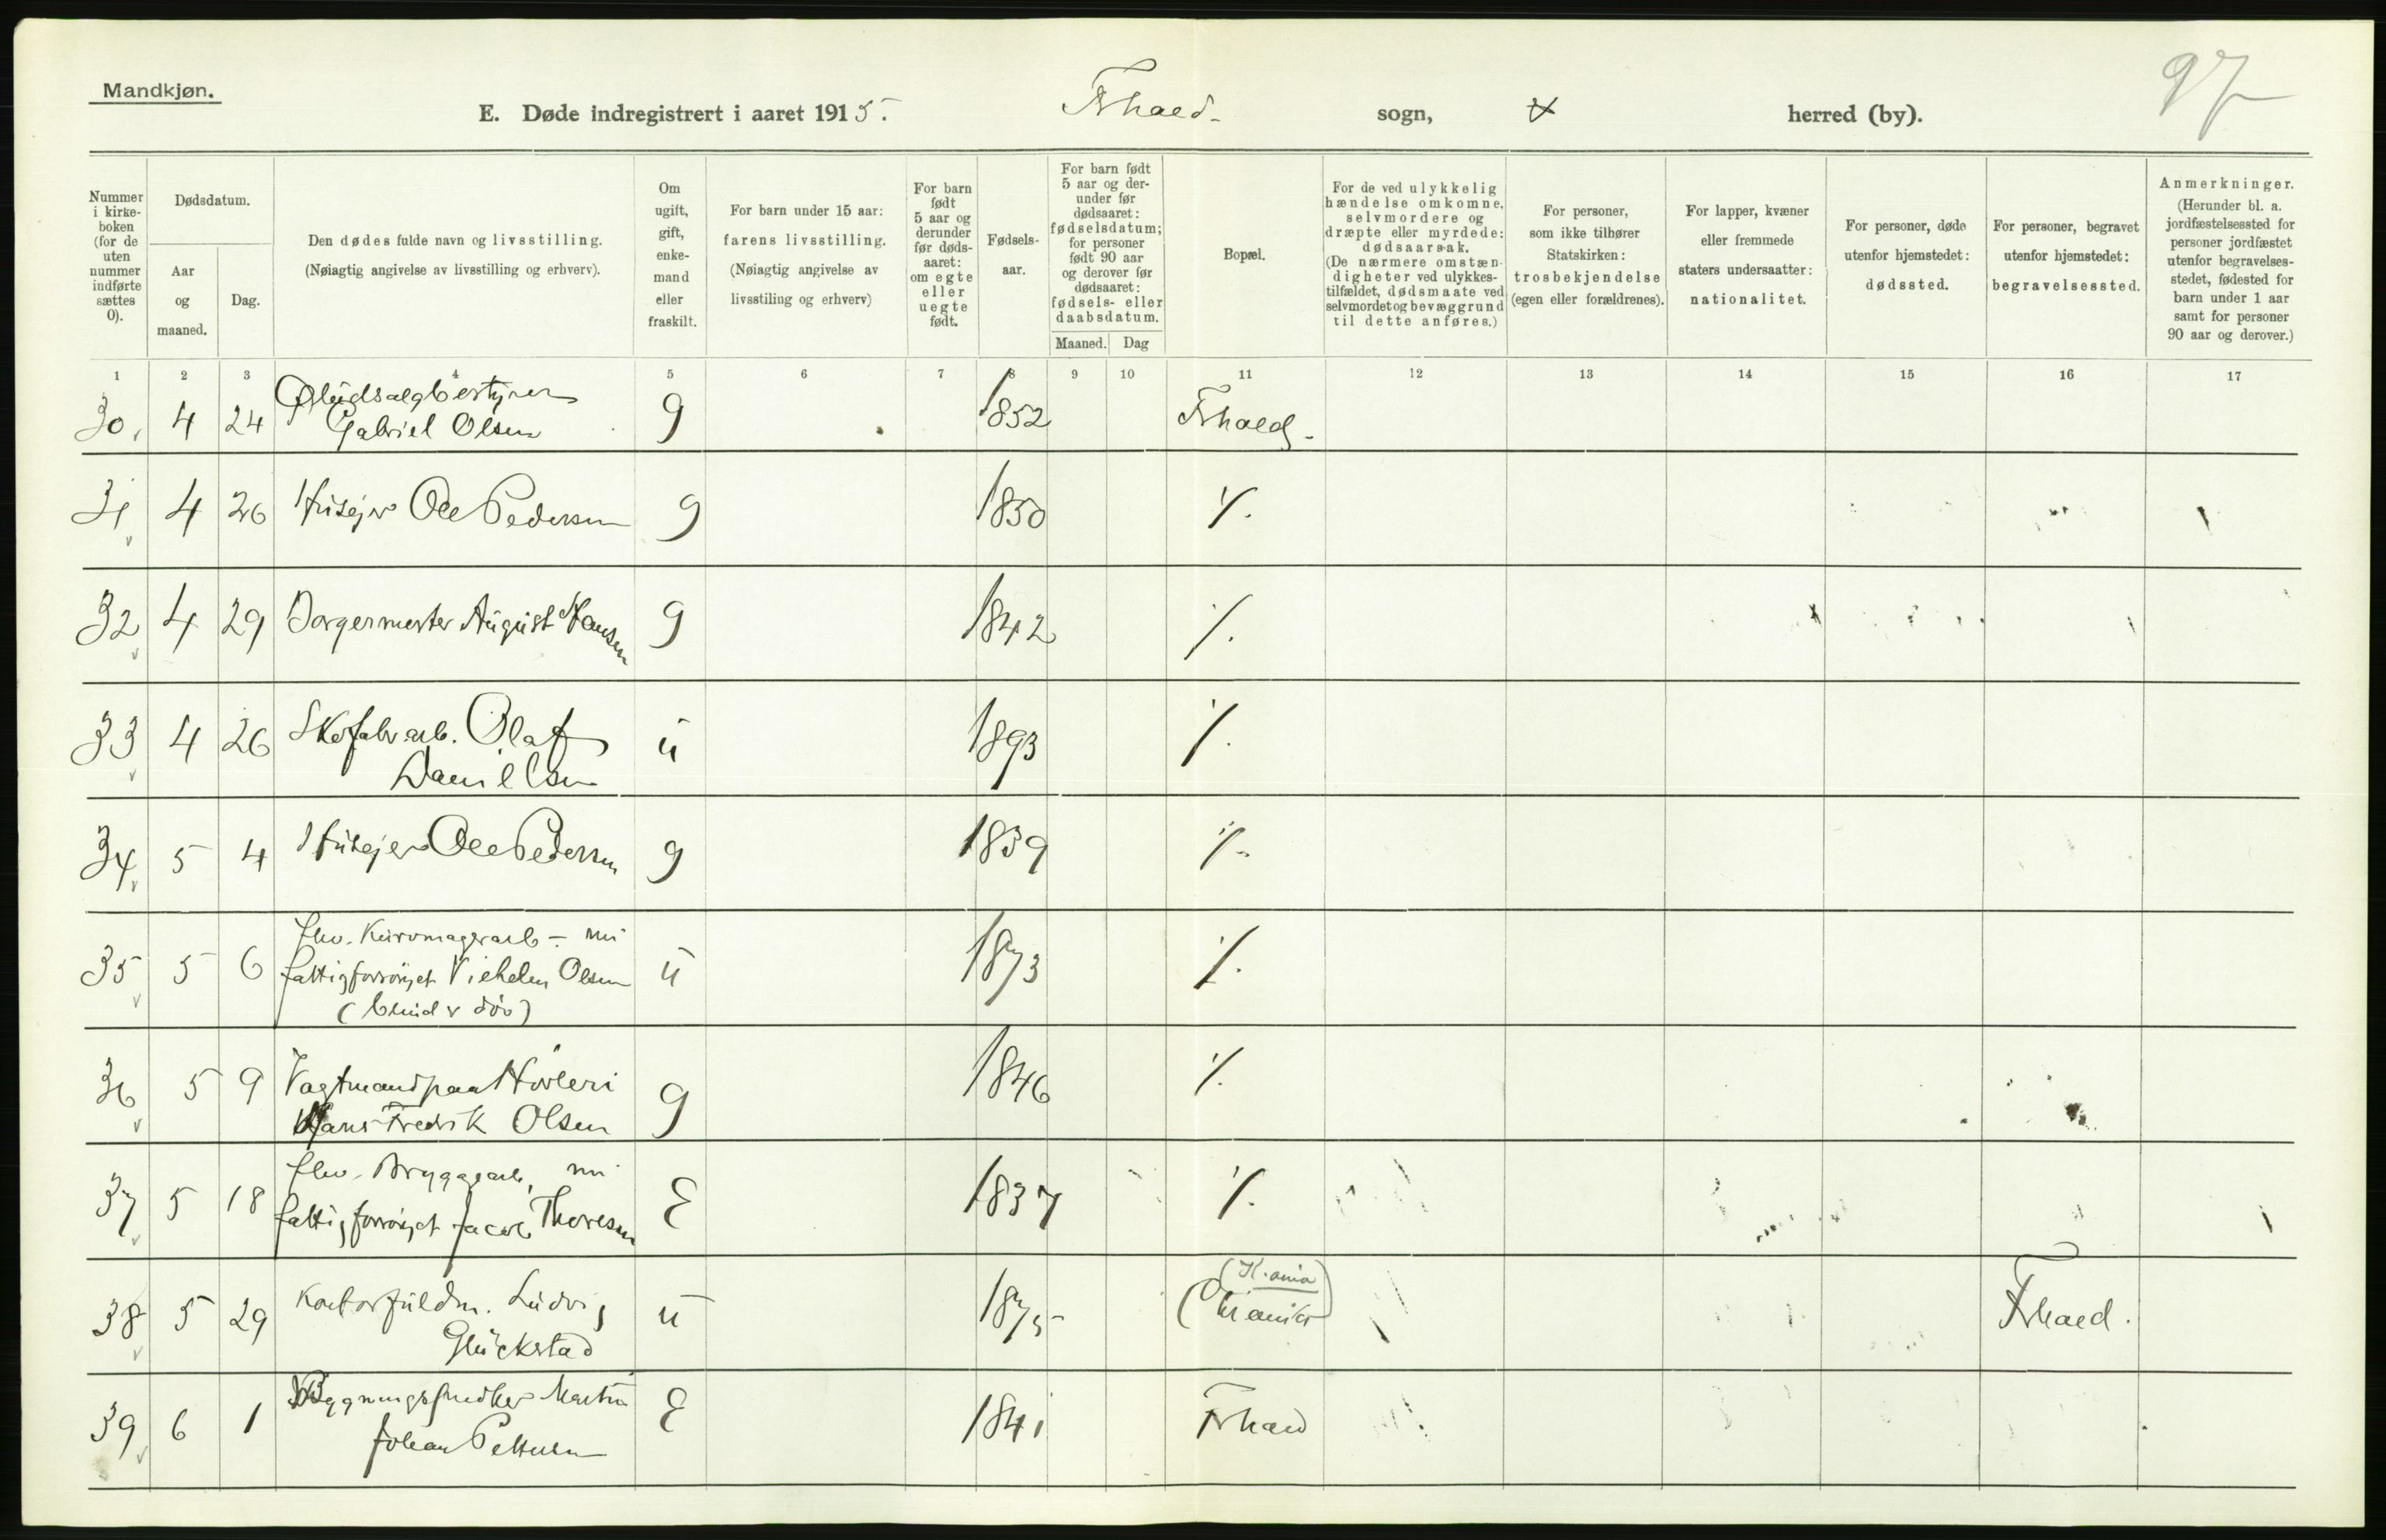 97
Mandkjøn.
E. Døde indregistrert i aaret 1915. Frhald. sogn, herred (by).
Nummer i kirke-boken (for de uten nummer indførte sættes 0).
Dødsdatum.
Aar og maaned.
Dag.
Den dødes fulde navn og livsstilling. (Nøiagtig angivelse av livsstilling og erhverv).
Om ugift, gift, enke-mand eller fraskilt.
For barn under 15 aar: farens livsstilling. (Nøiagtig angivelse av livsstiling og erhverv)
For barn født 5 aar og derunder før døds-aaret: om egte eller uegte født.
Fødsels-aar.
For barn født 5 aar og der-under før dødsaaret: fødselsdatum; for personer født 90 aar og derover før dødsaaret: fødsels- eller daabsdatum.
Maaned. Dag
Bopæl.
For de ved ulykkelig hændelse omkomne, selvmordere og dræpte eller myrdede: dødsaarsak. (De nærmere omstæn-digheter ved ulykkes-tilfældet, dødsmaate ved selvmordet og bevæggrund til dette anføres.)
For personer, som ikke tilhører Statskirken: trosbekjendelse (egen eller forældrenes).
For lapper, kvæner eller fremmede staters undersaatter: nationalitet.
For personer, døde utenfor hjemstedet: dødssted.
For personer, begravet utenfor hjemstedet: begravelsessted.
Anmerkninger. (Herunder bl. a. jordfæstelsessted for personer jordfæstet utenfor begravelses-stedet, fødested for barn under 1 aar samt for personer 90 aar og derover.)
1 2 3 4 5 6 7 8 9 10 11 12 13 14 15 16 17
30 4 24 g 1852 Frhald.
Gabriel Olsen
31 4 26 Husejer Ole Pedersen g 1850 ./.
32 4 29 Borgermester August Hansen g 1842 ./.
33 4 26 Skofabrarb. Olaf u 1893 ./.
Danielsen
34 5 4 Husejer Ole Pedersen g 1839 ./.
fhv. Kurvmagerarb - nu
35 5 6 fattigforsörget Vilhelm Olsen u 1873 ./.
(blind & döv)
36 5 9 Vagtmand paa Hövleri g 1846 ./.
Hans Fredrik Olsen
fhv. Bryggearb, nu
37 5 18 fattigforsörget Jacob Thoresen E 1837 ./.
38 5 29 Kontorfuldm. Ludvig u 1875 (K.ania) Frhald.
Glückstad
39 6 1 Bygningssnedker Martin E 1841 Frhald
Johan Pettersen